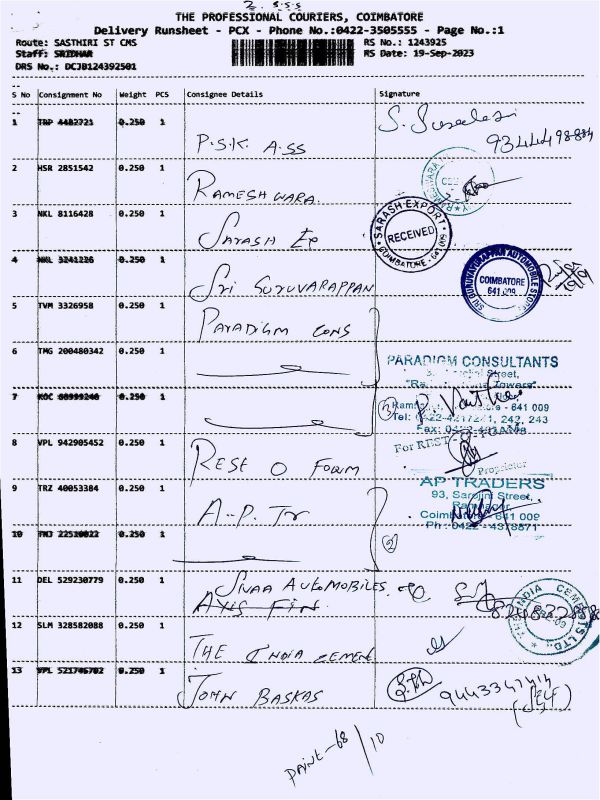 2. S.S.S
THE PROFESSIONAL COURIERS, COIMBATORE
Delivery Runsheet - PCX - Phone No.:0422-3505555 - Page No.:1
Route: SASTHIRI ST CMS
Staff: SRIDHAR
DRS No.: DCJB124392501
RS No.: 1243925
RS Date: 19-Sep-2023
S No Consignment No Weight PCS Consignee Details Signature
1 TRP 4482721 0.250 1 P.S.K. ASS
2 HSR 2851542 0.250 1 RAMESHWARA.
3 NKL 8116428 0.250 1 SARASH EX
SARASH EXPORT RECEIVED COIMBATORE - 641 009
4 NKL 3241226 0.250 1 SRI GURUVARAPPAN
SRI GURUVAYURAPPAN AUTOMOBILE STORES COIMBATORE 641 009
19/9
5 TVM 3326958 0.250 1 PARADIGM CONS
6 TMG 200480342 0.250 1
PARADIGM CONSULTANTS
Street,
Towers"
641 009
242, 243
7 KOC 0.250 1
3
8 VPL 942905452 0.250 1 REST O FORM
For REST-O-FORM
Proprietor
9 TRZ 40053384 0.250 1 A.P. Tr
AP TRADERS
93, Sarojini Street,
Ramnagar,
Coimbatore - 641 009
Ph : 0422 - 4378871
10 0.250 1
2
11 DEL 529230779 0.250 1 SIVAA AUTOMOBILES
AXIS FIN
12 SLM 328582088 0.250 1 THE INDIA CEMEN
THE INDIA CEMENTS LTD.
13 VPL 521746702 0.250 1 JOHN BASKAS
(SELF)
68/10